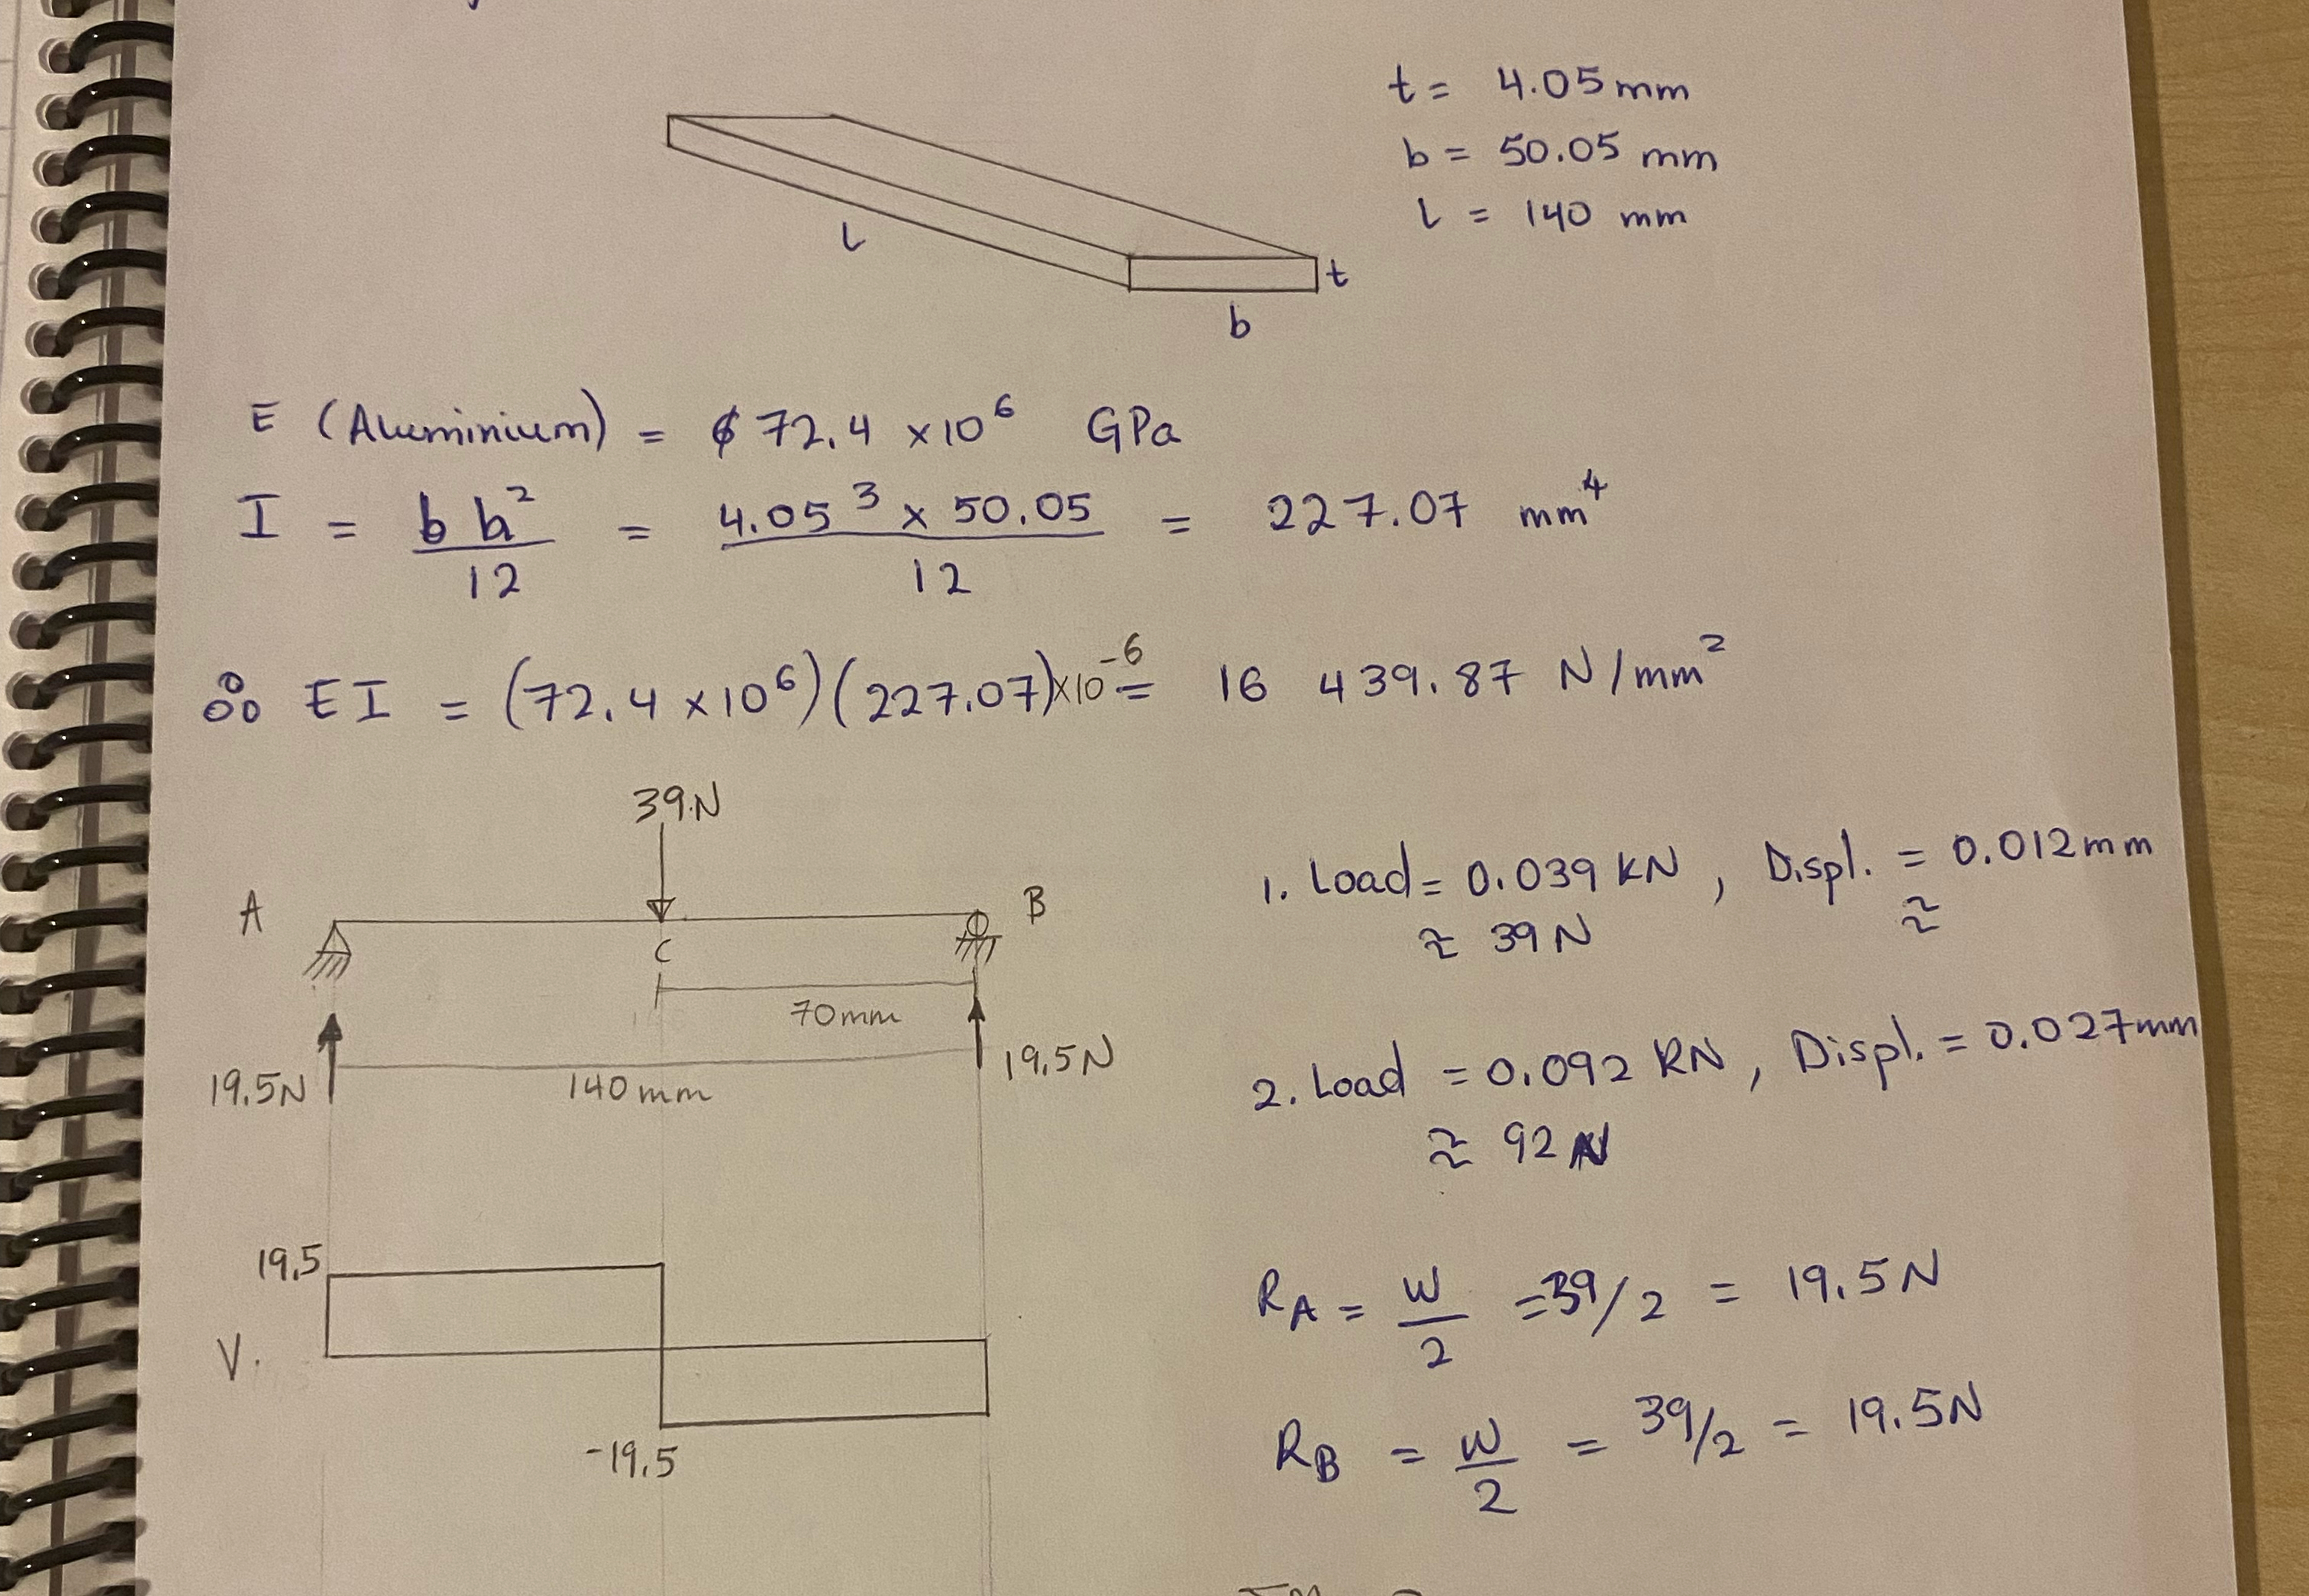 t = 4.05 mm
b = 50.05 mm
l = 140 mm
L
t
b
E (Aluminium) = 72.4 x10⁶ GPa
I = b h² / 12 = 4.05³ x 50.05 / 12 = 227.07 mm⁴
∴ EI = (72.4 x10⁶)(227.07)x10⁻⁶ = 16 439.87 N/mm²
39N
A
B
C
70mm
19.5N
140mm
19.5N
1. Load = 0.039 KN, Displ. = 0.012mm
≈ 39N ≈
2. Load = 0.092 KN, Displ. = 0.027mm
≈ 92N
19.5
V.
-19.5
RA = W/2 = 39/2 = 19.5N
RB = W/2 = 39/2 = 19.5N